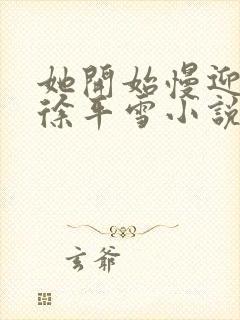 她開始慢迎
徐平雪小說
玄爺